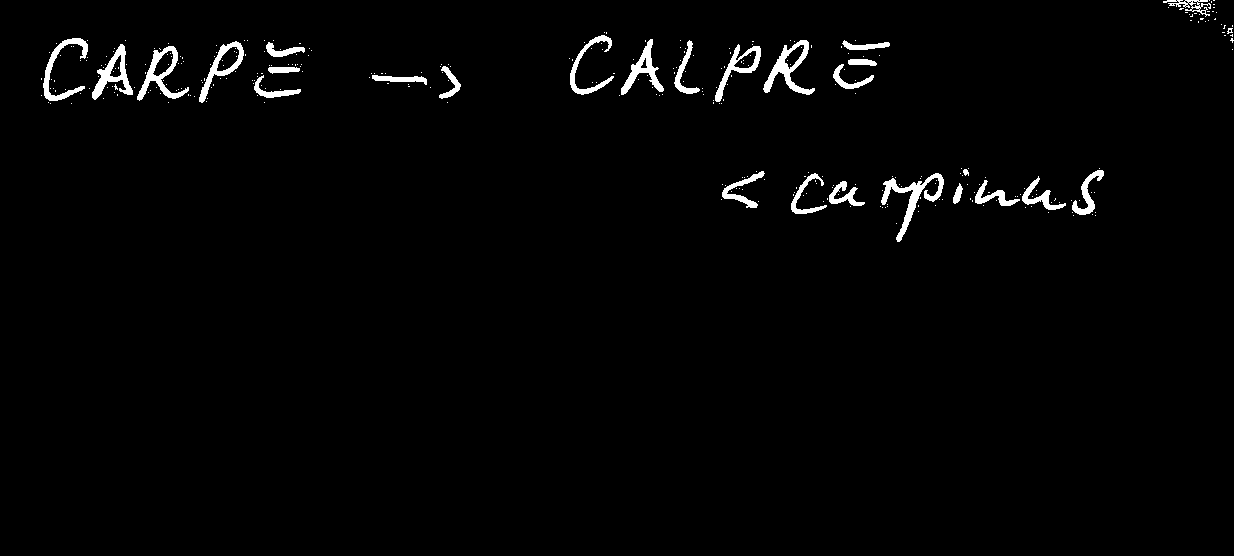 CARPE → CALPRE
< carpinus